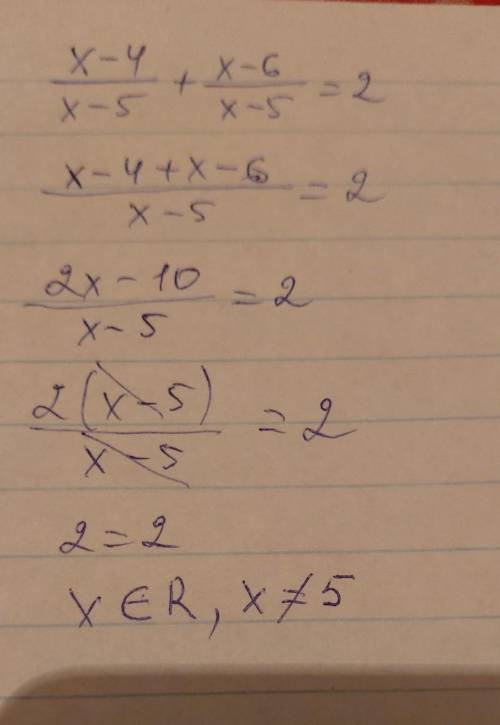 (x-4)/(x-5) + (x-6)/(x-5) = 2
(x-4+x-6)/(x-5) = 2
(2x-10)/(x-5) = 2
2(x-5)/(x-5) = 2
2=2
x∈R, x≠5